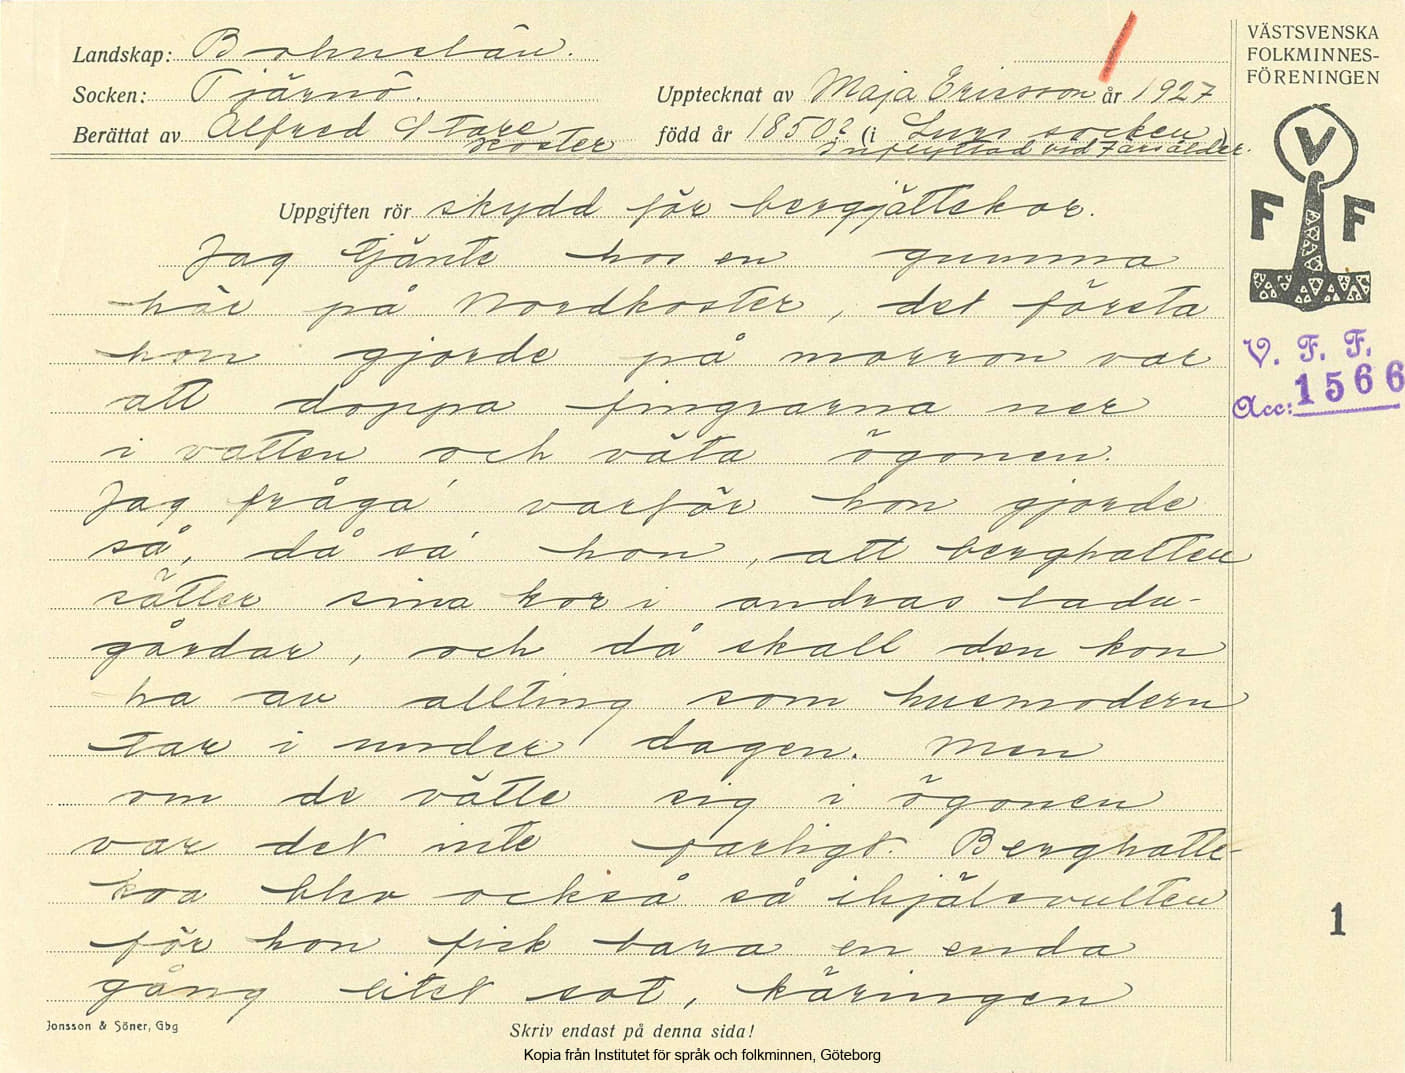 Landskap: Bohuslän.
Socken: Tjärnö.
Berättat av Alfred Stare
Koster
Upptecknat av Maja Ericsson år 1927
född år 1850? (i Lurs socken)
Inflyttad vid 7 års ålder.
VÄSTSVENSKA
FOLKMINNES-
FÖRENINGEN
V
F F
V. F. F.
Acc: 1566
Uppgiften rör skydd för bergjättekor.
Jag tjänte hos en gumma
här på Nordkoster, det första
hon gjorde på morron var
att doppa fingrarna ner
i vatten och väta ögonen.
Jag fråga' varför hon gjorde
så, då sa' hon, att berghatten
sätter sina kor i andras ladu-
gårdar, och då skall den kon
ha av allting som husmodern
tar i under dagen. Men
om de vätte sig i ögonen
var det inte farligt. Berghatte-
koa blev också så ihjälsvulten
för hon fick bara en enda
gång litet sot, käringen
1
Jonsson & Söner, Gbg
Skriv endast på denna sida!
Kopia från Institutet för språk och folkminnen, Göteborg